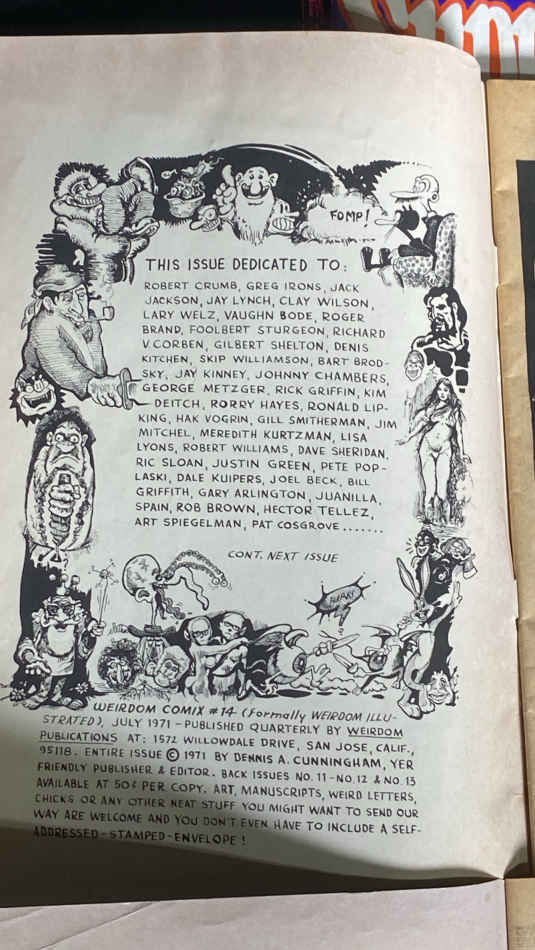 FOMP!
THIS ISSUE DEDICATED TO:
ROBERT CRUMB, GREG IRONS, JACK
JACKSON, JAY LYNCH, CLAY WILSON,
LARY WELZ, VAUGHN BODE, ROGER
BRAND, FOOLBERT STURGEON, RICHARD
V. CORBEN, GILBERT SHELTON, DENIS
KITCHEN, SKIP WILLIAMSON, BART BROD-
SKY, JAY KINNEY, JOHNNY CHAMBERS,
GEORGE METZGER, RICK GRIFFIN, KIM
DEITCH, RORRY HAYES, RONALD LIP-
KING, HAK VOGRIN, GILL SMITHERMAN, JIM
MITCHEL, MEREDITH KURTZMAN, LISA
LYONS, ROBERT WILLIAMS, DAVE SHERIDAN,
RIC SLOAN, JUSTIN GREEN, PETE POP-
LASKI, DALE KUIPERS, JOEL BECK, BILL
GRIFFITH, GARY ARLINGTON, JUANILLA,
SPAIN, ROB BROWN, HECTOR TELLEZ,
ART SPIEGELMAN, PAT COSGROVE .......
CONT. NEXT ISSUE
WEIRDOM COMIX #14 (Formally WEIRDOM ILLU-
STRATED), JULY 1971 - PUBLISHED QUARTERLY BY WEIRDOM
PUBLICATIONS AT: 1572 WILLOWDALE DRIVE, SAN JOSE, CALIF.,
95118. ENTIRE ISSUE © 1971 BY DENNIS A. CUNNINGHAM, YER
FRIENDLY PUBLISHER & EDITOR. BACK ISSUES NO. 11 - NO. 12 & NO. 13
AVAILABLE AT 50¢ PER COPY. ART, MANUSCRIPTS, WEIRD LETTERS,
CHICKS OR ANY OTHER NEAT STUFF YOU MIGHT WANT TO SEND OUR
WAY ARE WELCOME AND YOU DON'T EVEN HAVE TO INCLUDE A SELF-
ADDRESSED - STAMPED - ENVELOPE!